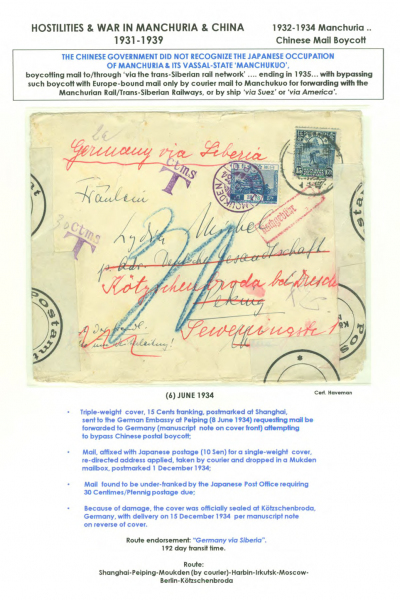 HOSTILITIES & WAR IN MANCHURIA & CHINA
1931-1939
1932-1934 Manchuria ..
Chinese Mail Boycott
THE CHINESE GOVERNMENT DID NOT RECOGNIZE THE JAPANESE OCCUPATION
OF MANCHURIA & ITS VASSAL-STATE 'MANCHUKUO',
boycotting mail to/through 'via the trans-Siberian rail network' .... ending in 1935... with bypassing
such boycott with Europe-bound mail only by courier mail to Manchukuo for forwarding with the
Manchurian Rail/Trans-Siberian Railways, or by ship 'via Suez' or 'via America'.
Germany via Siberia
Ctms
T
MOUKDEN
Fräulein
30 Ctms
T
Lydia
Kötzschenbroda bei Dresden
Peking
Postamt
Postamt
(6) JUNE 1934
Cert. Haveman
• Triple-weight cover, 15 Cents franking, postmarked at Shanghai,
sent to the German Embassy at Peiping (8 June 1934) requesting mail be
forwarded to Germany (manuscript note on cover front) attempting
to bypass Chinese postal boycott;
• Mail, affixed with Japanese postage (10 Sen) for a single-weight cover,
re-directed address applied, taken by courier and dropped in a Mukden
mailbox, postmarked 1 December 1934;
• Mail found to be under-franked by the Japanese Post Office requiring
30 Centimes/Pfennig postage due;
• Because of damage, the cover was officially sealed at Kötzschenbroda,
Germany, with delivery on 15 December 1934 per manuscript note
on reverse of cover.
Route endorsement: "Germany via Siberia".
192 day transit time.
Route:
Shanghai-Peiping-Moukden (by courier)-Harbin-Irkutsk-Moscow-
Berlin-Kötzschenbroda